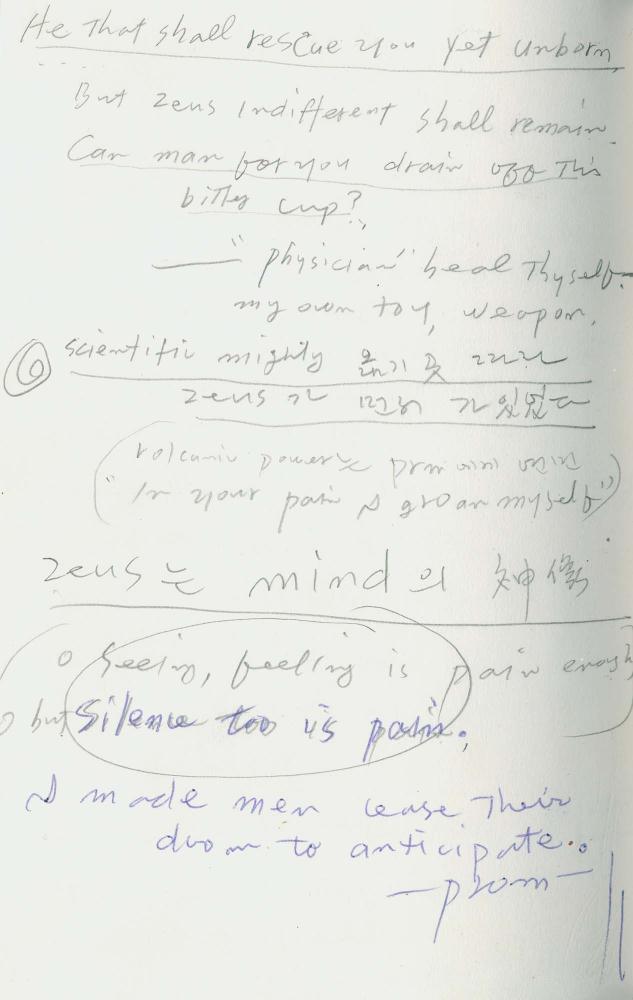 He That shall rescue you yet unborn,
But Zeus Indifferent shall remain.
Can man for you drain off This
bitter cup?,
— "physician" heal Thyself.
my own toy, weapon.
scientific mighty
Zeus가 가 있었다
volcanic power는
"In your pain I groan myself"
Zeus는 mind의 神
o Seeing, feeling is pain enough
o but Silence too is pain.
I made men cease Their
doom to anticipate.
— prom —